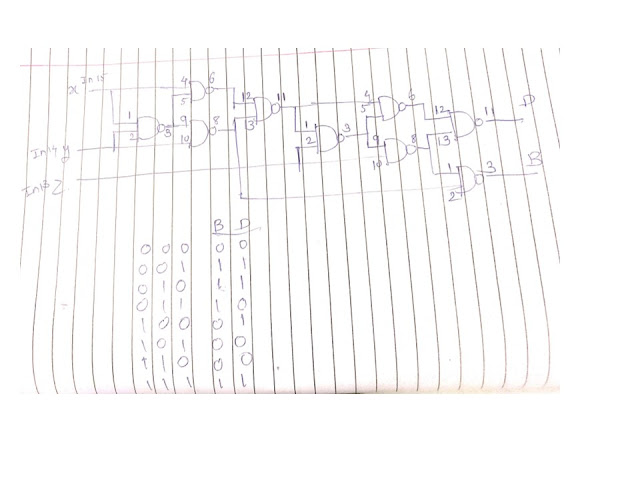 In15
x 4 6
5 12 11 4 6 12 11 D
1 9 13 5
2 3 1 3 9 8 13
10 8 2
In14 y 10 1 3 B
In13 Z 2
B D
0 0 0 0 0
0 0 1 1 1
0 1 0 1 1
0 1 1 1 0
1 0 0 0 1
1 0 1 0 0
1 1 0 0 0
1 1 1 1 1